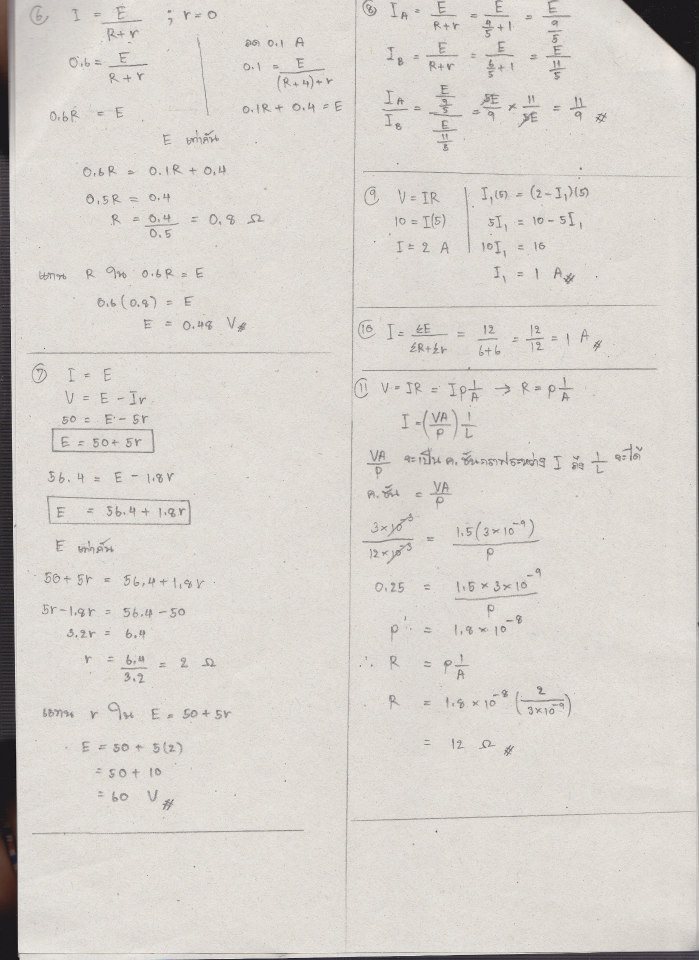 ⑥ I = E/(R+r) ; r=0
0.6 = E/(R+r)
0.6R = E
ลด 0.1 A
0.1 = E/((R+4)+r)
0.1R + 0.4 = E
E เท่ากัน
0.6R = 0.1R + 0.4
0.5R = 0.4
R = 0.4/0.5 = 0.8 Ω
แทน R ใน 0.6R = E
0.6(0.8) = E
E = 0.48 V #
⑦ I = E
V = E - Ir
50 = E - 5r
E = 50 + 5r
56.4 = E - 1.8r
E = 56.4 + 1.8r
E เท่ากัน
50 + 5r = 56.4 + 1.8r
5r - 1.8r = 56.4 - 50
3.2r = 6.4
r = 6.4/3.2 = 2 Ω
แทน r ใน E = 50 + 5r
E = 50 + 5(2)
= 50 + 10
= 60 V #
⑧ I_A = E/(R+r) = E/(9/5+1) = E/(9/5)
I_B = E/(R+r) = E/(6/5+1) = E/(11/5)
I_A/I_B = (E/(9/5))/(E/(11/5)) = 5E/9 × 11/5E = 11/9 #
⑨ V = IR
10 = I(5)
I = 2 A
I₁(5) = (2-I₁)(5)
5I₁ = 10 - 5I₁
10I₁ = 10
I₁ = 1 A #
⑩ I = ΣE/(ΣR+Σr) = 12/(6+6) = 12/12 = 1 A #
⑪ V = IR = Iρ1/A → R = ρ1/A
I = (VA/ρ) 1/L
VA/ρ จะเป็น ค.ชันกราฟระหว่าง I กับ 1/L จะได้
ค.ชัน = VA/ρ
3×10⁻³/12×10⁻³ = 1.5(3×10⁻⁹)/ρ
0.25 = 1.5×3×10⁻⁹/ρ
ρ = 1.8×10⁻⁸
∴ R = ρ1/A
R = 1.8×10⁻⁸ (2/3×10⁻⁹)
= 12 Ω #